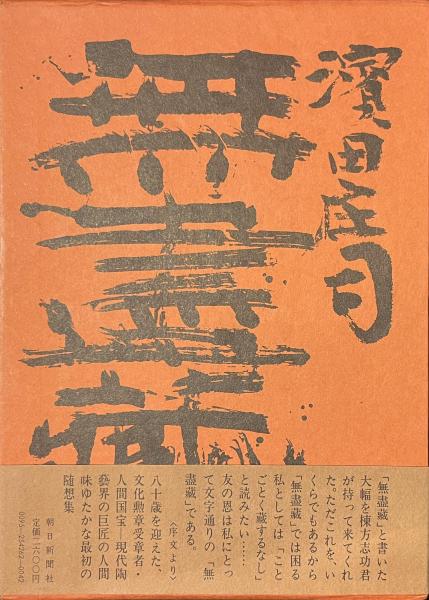 濱田庄司
無盡蔵
「無盡藏」と書いた
大幅を棟方志功君
が持って来てくれ
た。ただこれを、い
くらでもあるから
「無盡藏」では困る
私としては「こと
ごとく藏するなし」
と読みたい……
友の恩は私にとっ
て文字通りの「無
盡藏」である。
〈序文より〉
八十歳を迎えた、
文化勲章受章者・
人間国宝―現代陶
藝界の巨匠の人間
味ゆたかな最初の
随想集
朝日新聞社
定価二六〇〇円
0095-254262-0042